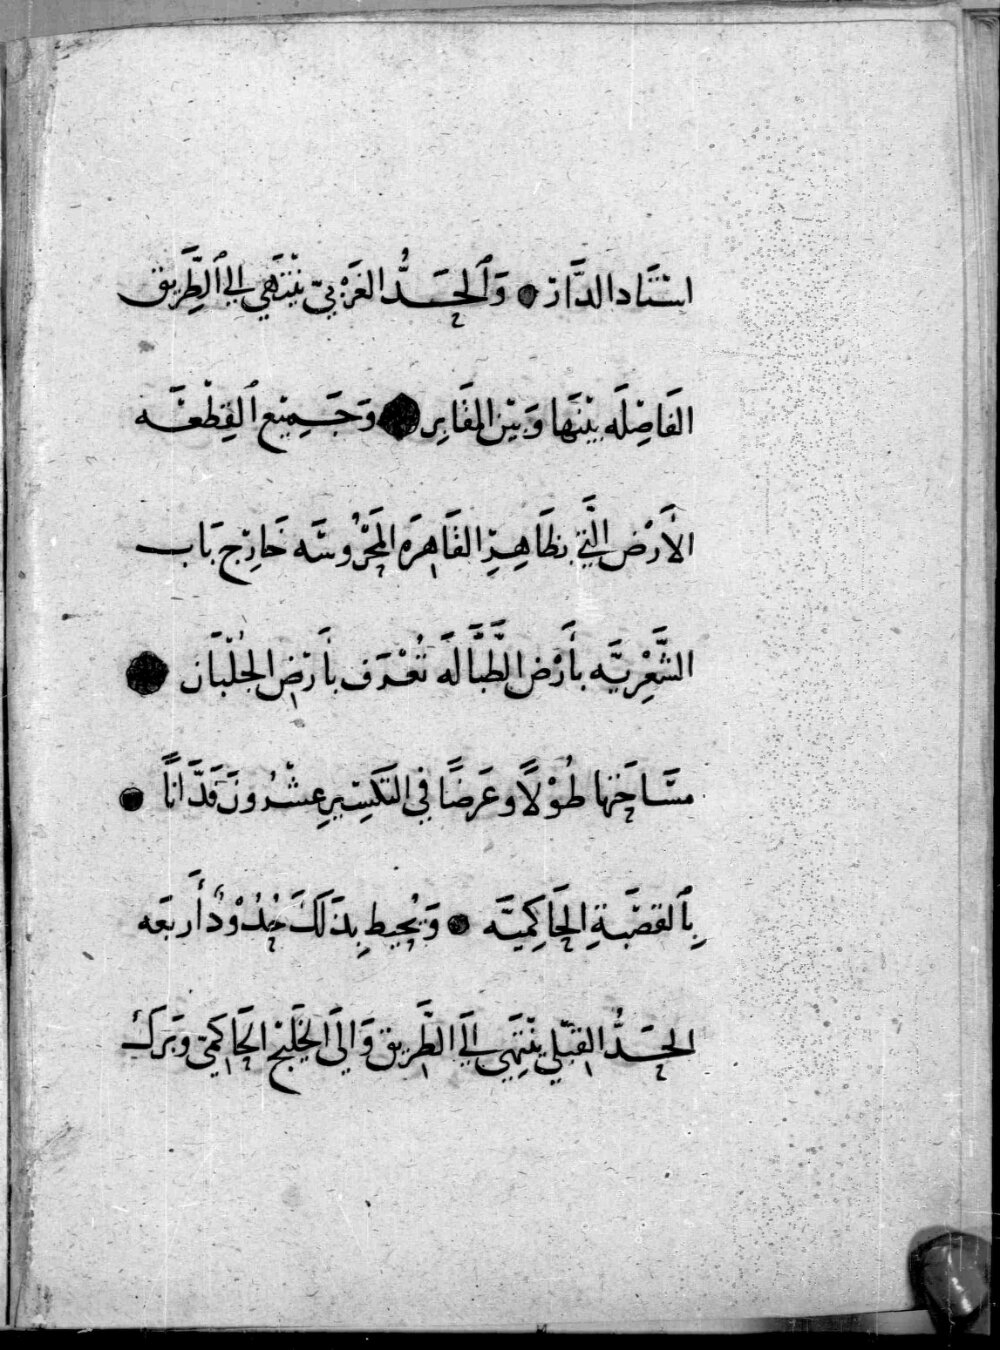 استاد الدَّار ● وَٱلحَدُّ الغَرْبِيّ يَنْتَهِي إلى ٱلطَّرِيق
الفَاصِلَه بَيْنَهَا وَبَيْن المقَابِر ● وَجَمِيْع ٱلقِطْعَه
الأَرْض الَّتي بظَاهِرِ القَاهِرَه المَحْرُوسَه خَارِج بَاب
الشَّعْرِيَّه بأَرْض الطَّبَّالَه تُعْرَف بأَرْض الجُلْبَان ●
مسَاحَتها طُوْلًا وعَرضًا في التَكسِيرِ عِشْرُونَ فَدَّانًا ●
بِٱلقصَبَةِ الحَاكِمِيَّه ● وَيُحِيط بِذلَكَ حُدُوْدٌ أَربعَه
الحَدُّ القبْلي يَنْتَهِي إلَى الطَّرِيق وَإلَى الخَلِيْج الحَاكِمِيّ وَبَركُ